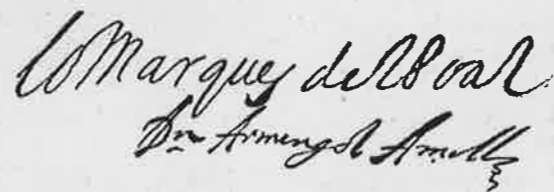 lo Marques del Poal
Dn Armengol Amill